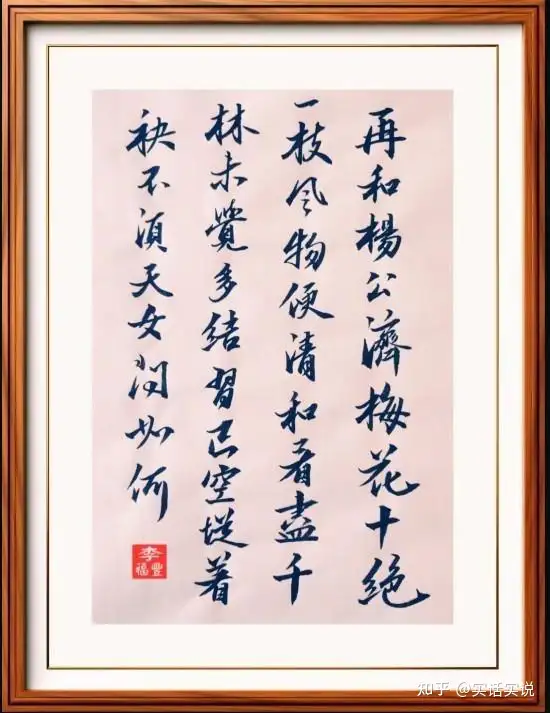 再和楊公濟梅花十絕
一枝風物便清和看盡千
林未覺多結習已空從着
袂不須天女問如何
李豐福
知乎 @实话实说